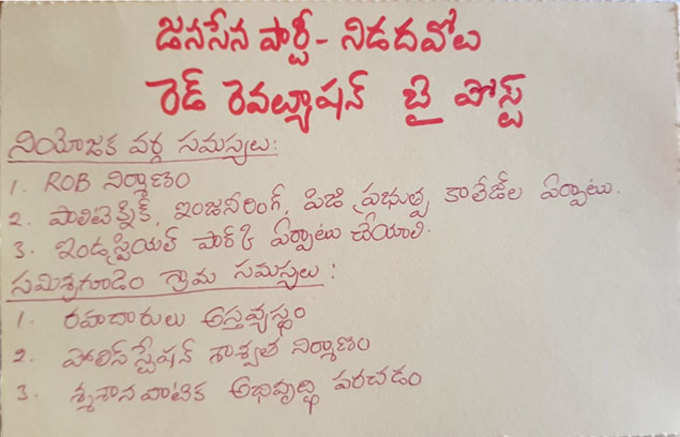 జనసేన పార్టీ - నిడదవోలు
రెడ్ రెవల్యూషన్ బై పోస్ట్
నియోజక వర్గ సమస్యలు:
1. ROB నిర్మాణం
2. పాలిటెక్నిక్, ఇంజనీరింగ్, పిజి ప్రభుత్వ కాలేజీల ఏర్పాటు.
3. ఇండస్ట్రియల్ పార్క్ ఏర్పాటు చేయాలి.
సమిశ్రగూడెం గ్రామ సమస్యలు:
1. రహదారులు అస్తవ్యస్థం
2. పోలిస్ స్టేషన్ శాశ్వత నిర్మాణం
3. శ్మశాన వాటిక అభివృద్ధి పరచడం